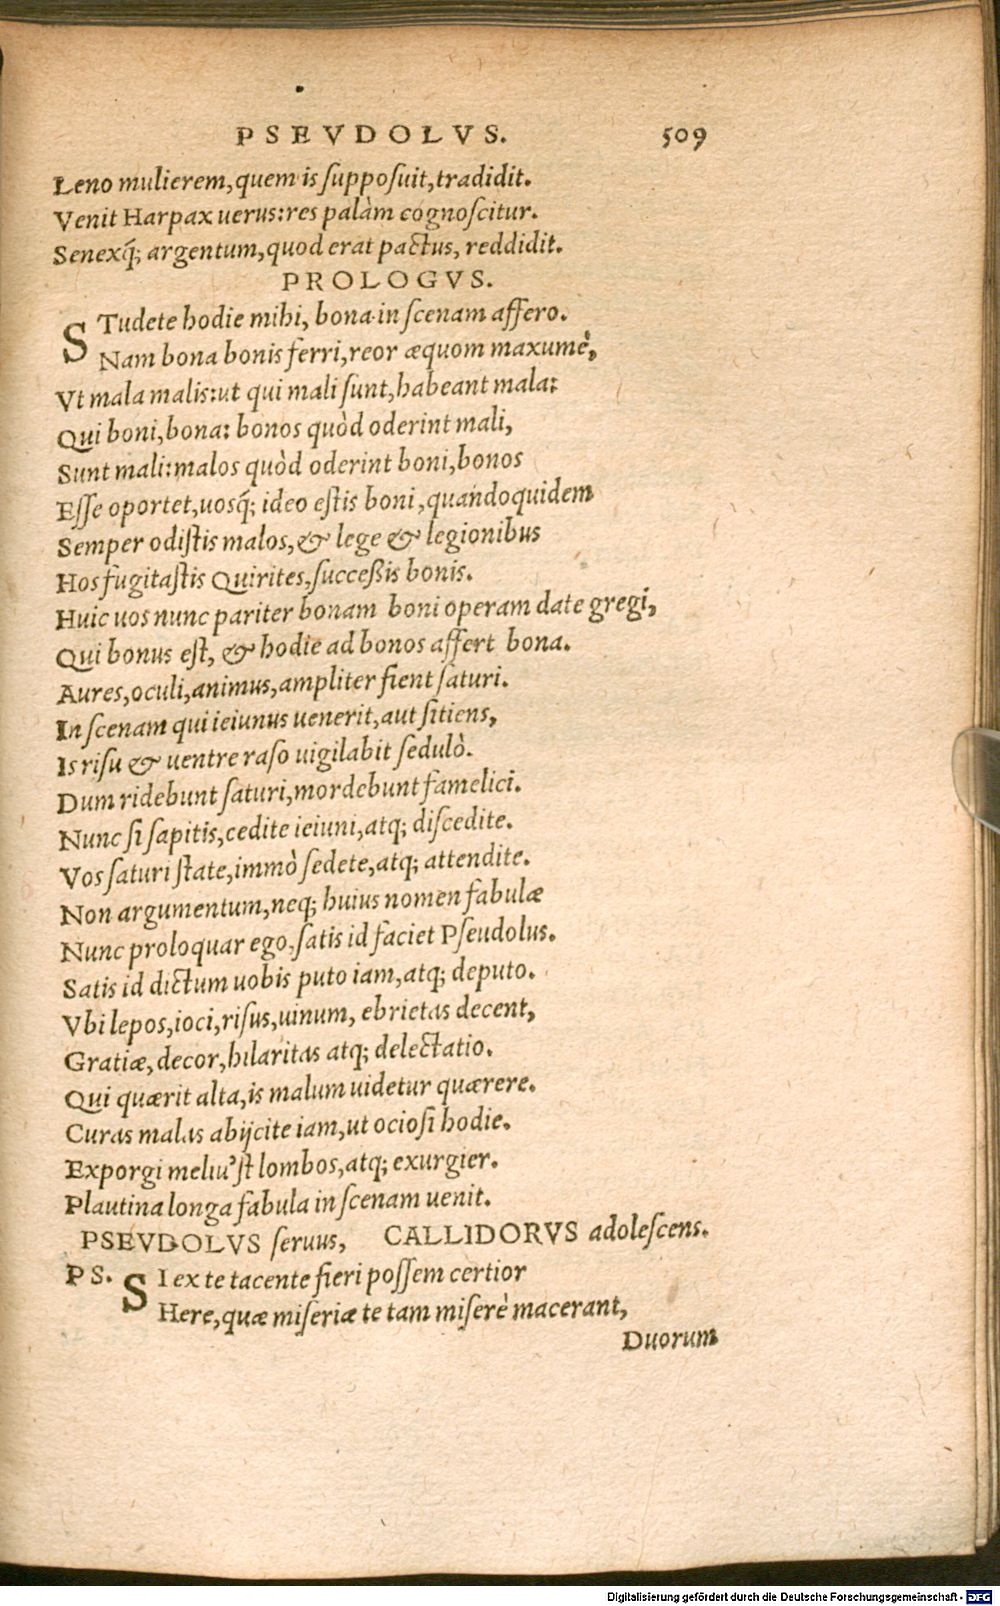 PSEVDOLVS. 509
Leno mulierem, quem is ſuppoſuit, tradidit.
Venit Harpax uerus: res palàm cognoſcitur.
Senexq́; argentum, quod erat pactus, reddidit.
PROLOGVS.
STudete hodie mihi, bona in ſcenam affero.
Nam bona bonis ferri, reor æquom maxumè,
Vt mala malis: ut qui mali ſunt, habeant mala:
Qui boni, bona: bonos quòd oderint mali,
Sunt mali: malos quòd oderint boni, bonos
Eſſe oportet, uosq́; ideo eſtis boni, quandoquidem
Semper odiſtis malos, & lege & legionibus
Hos fugitaſtis Quirites, ſucceßis bonis.
Huic uos nunc pariter bonam boni operam date gregi,
Qui bonus eſt, & hodie ad bonos affert bona.
Aures, oculi, animus, ampliter fient ſaturi.
In ſcenam qui ieiunus uenerit, aut ſitiens,
Is riſu & uentre raſo uigilabit ſedulò.
Dum ridebunt ſaturi, mordebunt famelici.
Nunc ſi ſapitis, cedite ieiuni, atq; diſcedite.
Vos ſaturi ſtate, immò ſedete, atq; attendite.
Non argumentum, neq; huius nomen fabulæ
Nunc proloquar ego, ſatis id faciet Pſeudolus.
Satis id dictum uobis puto iam, atq; deputo.
Vbi lepos, ioci, riſus, uinum, ebrietas decent,
Gratiæ, decor, hilaritas atq; delectatio.
Qui quærit alta, is malum uidetur quærere.
Curas malas abijcite iam, ut ocioſi hodie.
Exporgi meliu'ſt lombos, atq; exurgier.
Plautina longa fabula in ſcenam uenit.
PSEVDOLVS ſeruus, CALLIDORVS adoleſcens.
PS. SI ex te tacente fieri poſſem certior
Here, quæ miſeriæ te tam miſerè macerant,
Duorum
Digitalisierung gefördert durch die Deutsche Forschungsgemeinschaft - DFG